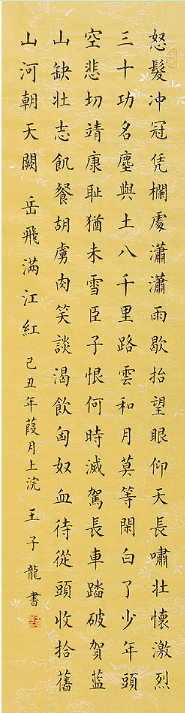 怒髮冲冠凭欄處瀟瀟雨歇抬望眼仰天長嘯壯懷激烈
三十功名塵與土八千里路雲和月莫等閑白了少年頭
空悲切靖康耻猶未雪臣子恨何時滅駕長車踏破賀藍
山缺壯志飢餐胡虜肉笑談渴飲匈奴血待從頭收拾舊
山河朝天闕 岳飛满江紅 己丑年葭月上浣 王子龍書